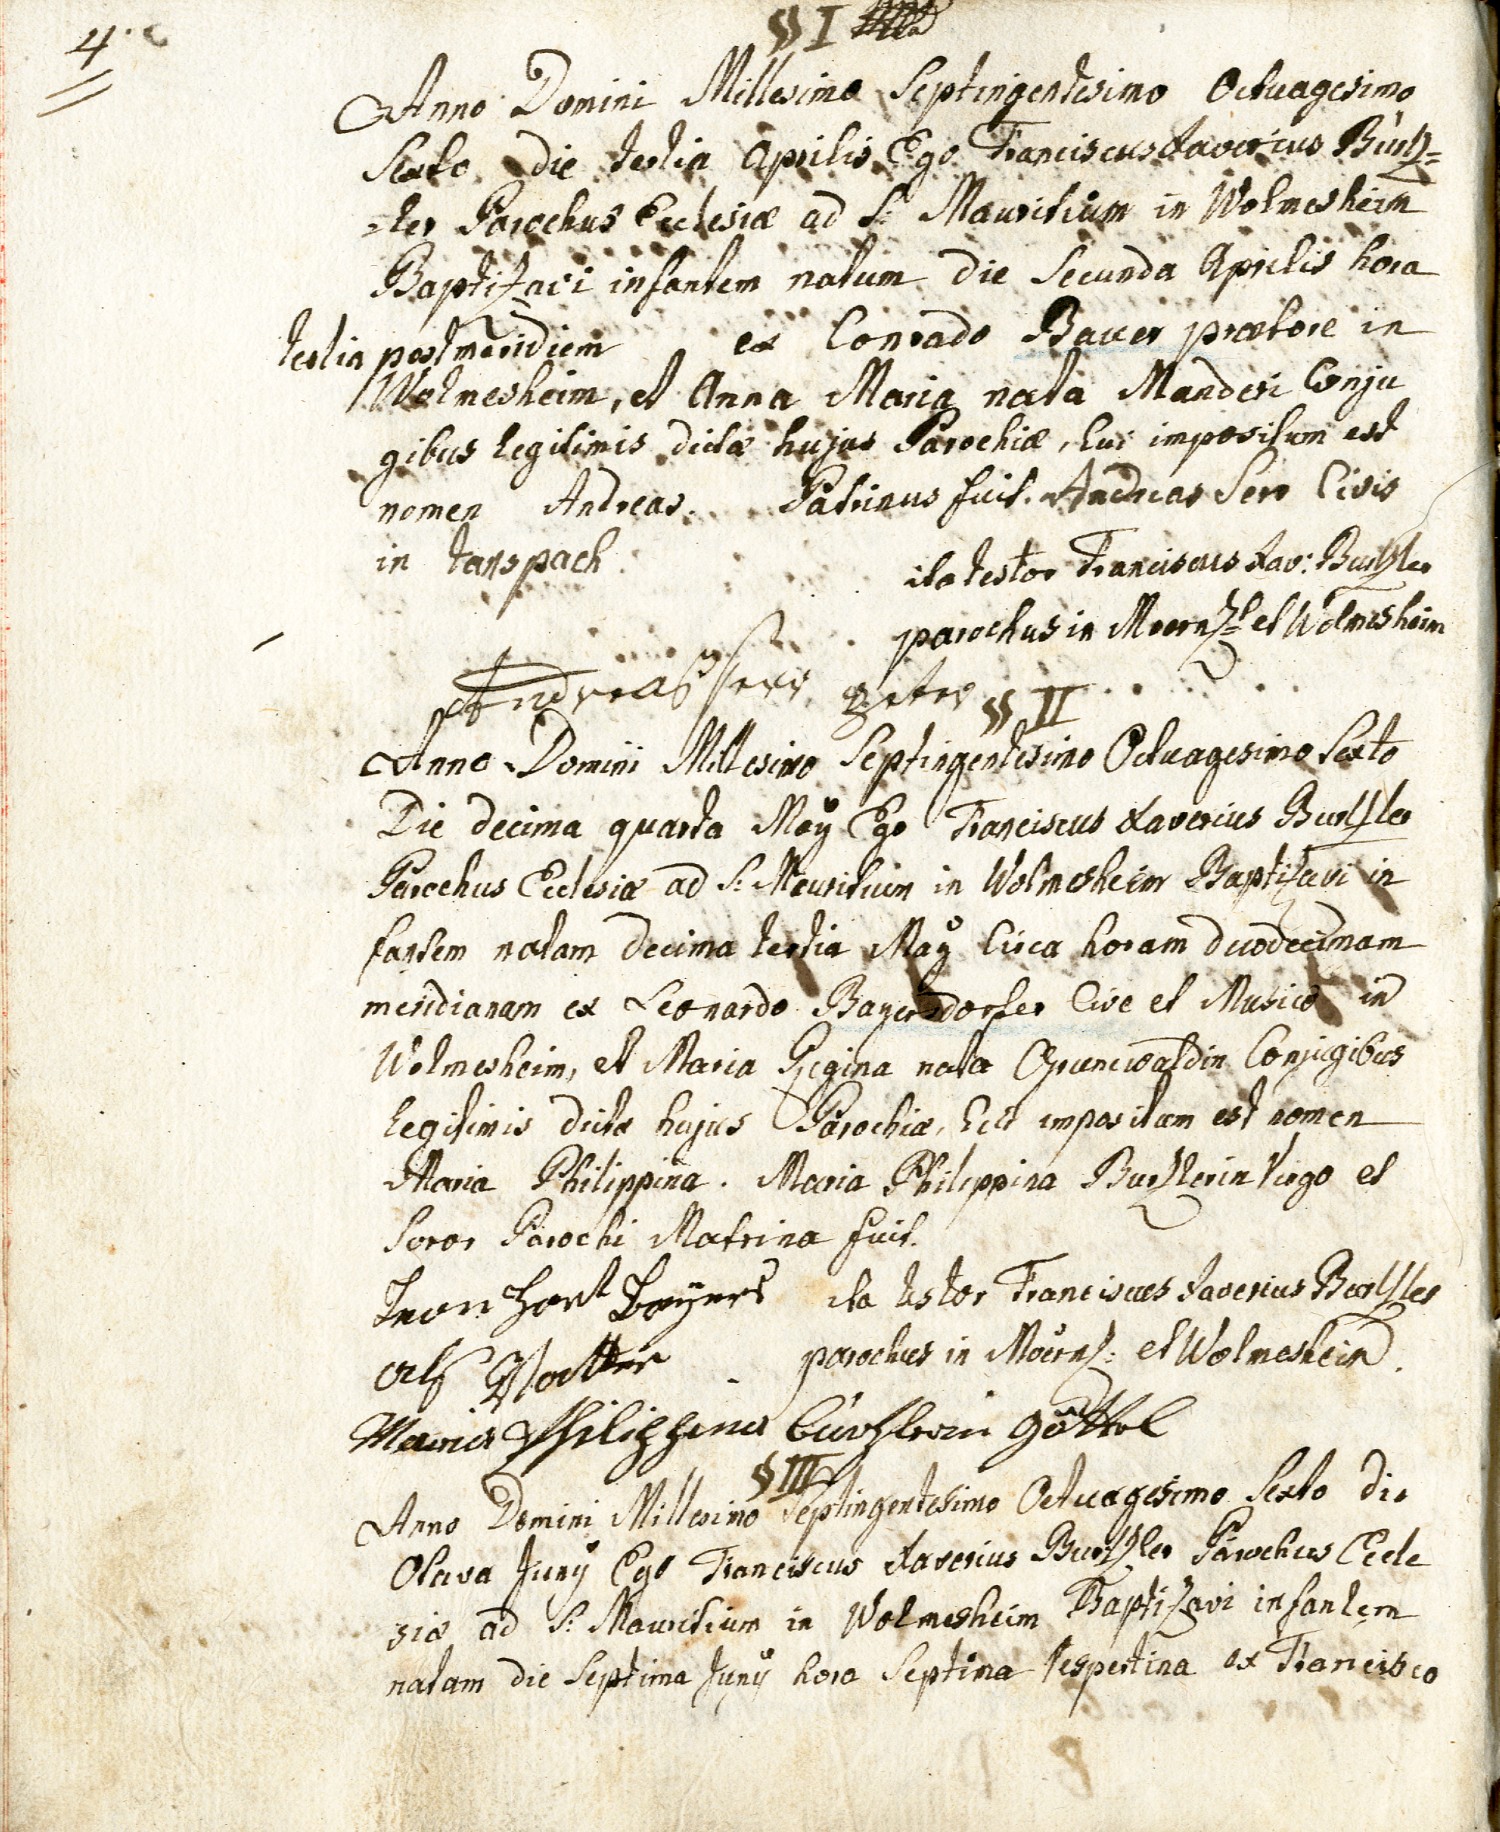 4.
§§ I
Anno Domini Millesimo Septingentesimo Octuagesimo
Sexto die tertia Aprilis Ego Franciscus Xaverius Burtz=
=ler Parochus Ecclesiæ ad S: Mauritium in Wolmesheim
Baptizavi infantem natum die Secunda Aprilis hora
tertia postmeridiem ex Conrado Bauer prætore in
Wolmesheim, et Anna Maria nata Manderi Conju
gibus legitimis dictæ hujus Parochiæ, Cui impositum est
nomen Andreas. Patrinus fuit. Andreas Serr Civis
in
ita testor Franciscus Xav: Burtzler
parochus in Moernz= et Wolmesheim
Andreas Serr
§§ II
Anno Domini Millesimo Septingentesimo Octuagesimo Sexto
Die decima quarta Maÿ Ego Franciscus Xaverius Burtzler
Parochus Ecclesiæ ad S: Mauritium in Wolmesheim Baptizavi in
fantem natam decima tertia Maÿ Circa horam duodecimam
meridianam ex Leonardo Bayersdorfer Cive et Musico in
Wolmesheim, et Maria Regina nata Grunewaldin Conjugibus
legitimis dictæ hujus Parochiæ, Cui impositum est nomen
Maria Philippina. Maria Philippina Burtzlerin Virgo et
Soror Parochi Matrina fuit.
ita testor Franciscus Xaverius Burtzler
als Vatter
parochus in Moernz: et Wolmesheim.
Maria Philippina Burtzlerin göttel
§ III
Anno Domini Millesimo Septingentesimo Octuagesimo Sexto die
Octava Junÿ Ego Franciscus Xaverius Burtzler Parochus Eccle
siæ ad S: Mauritium in Wolmesheim Baptizavi infantem
natam die Septima Junÿ hora Septima Vespertina ex Francisco